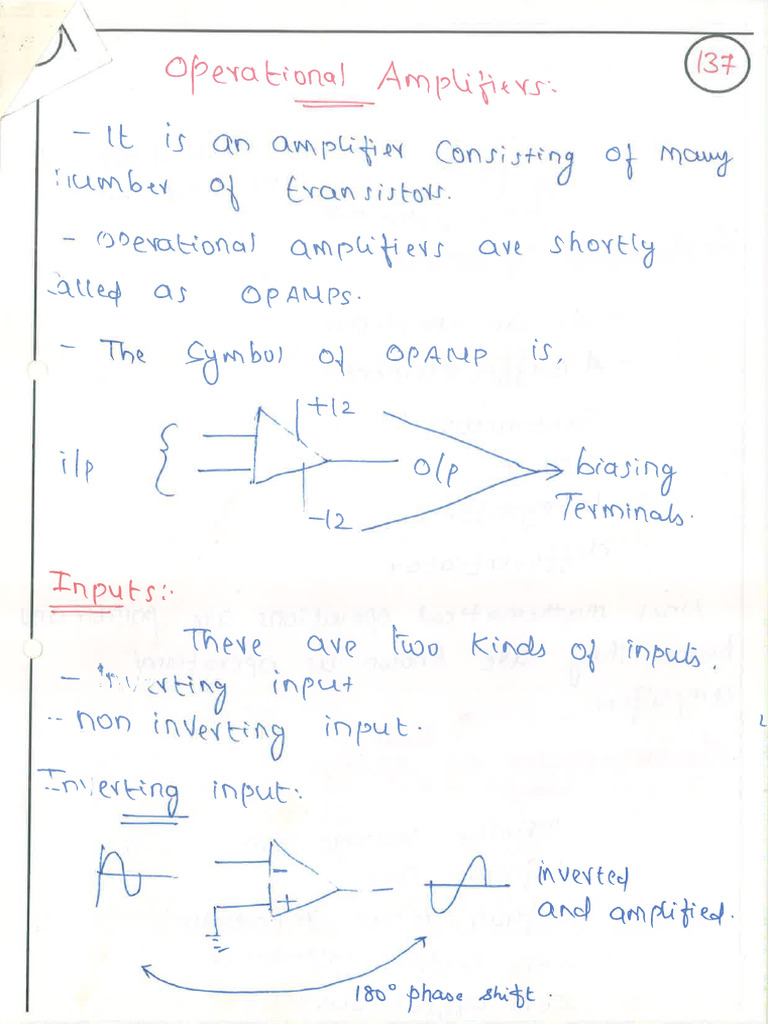 137
Operational Amplifiers:
- It is an amplifier consisting of many
number of transistors.
- Operational amplifiers are shortly
called as OPAMPs.
- The symbol of OPAMP is,
+12
i/p { o/p biasing
Terminals.
-12
Inputs:-
There are two kinds of inputs.
- inverting input
- non inverting input.
Inverting input:
- inverted
+ and amplified.
180° phase shift.